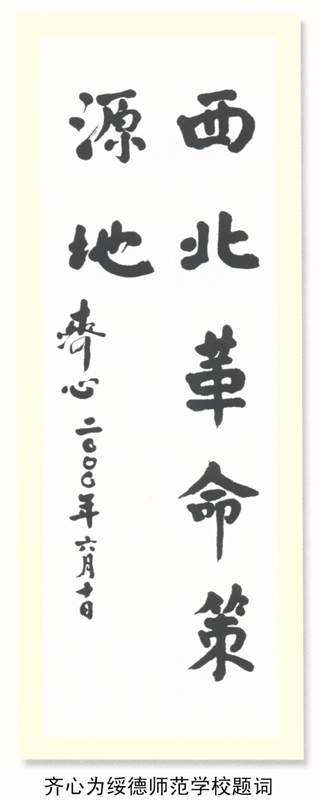 西北革命策
源地
齊心 二〇〇〇年六月十日
齐心为绥德师范学校题词